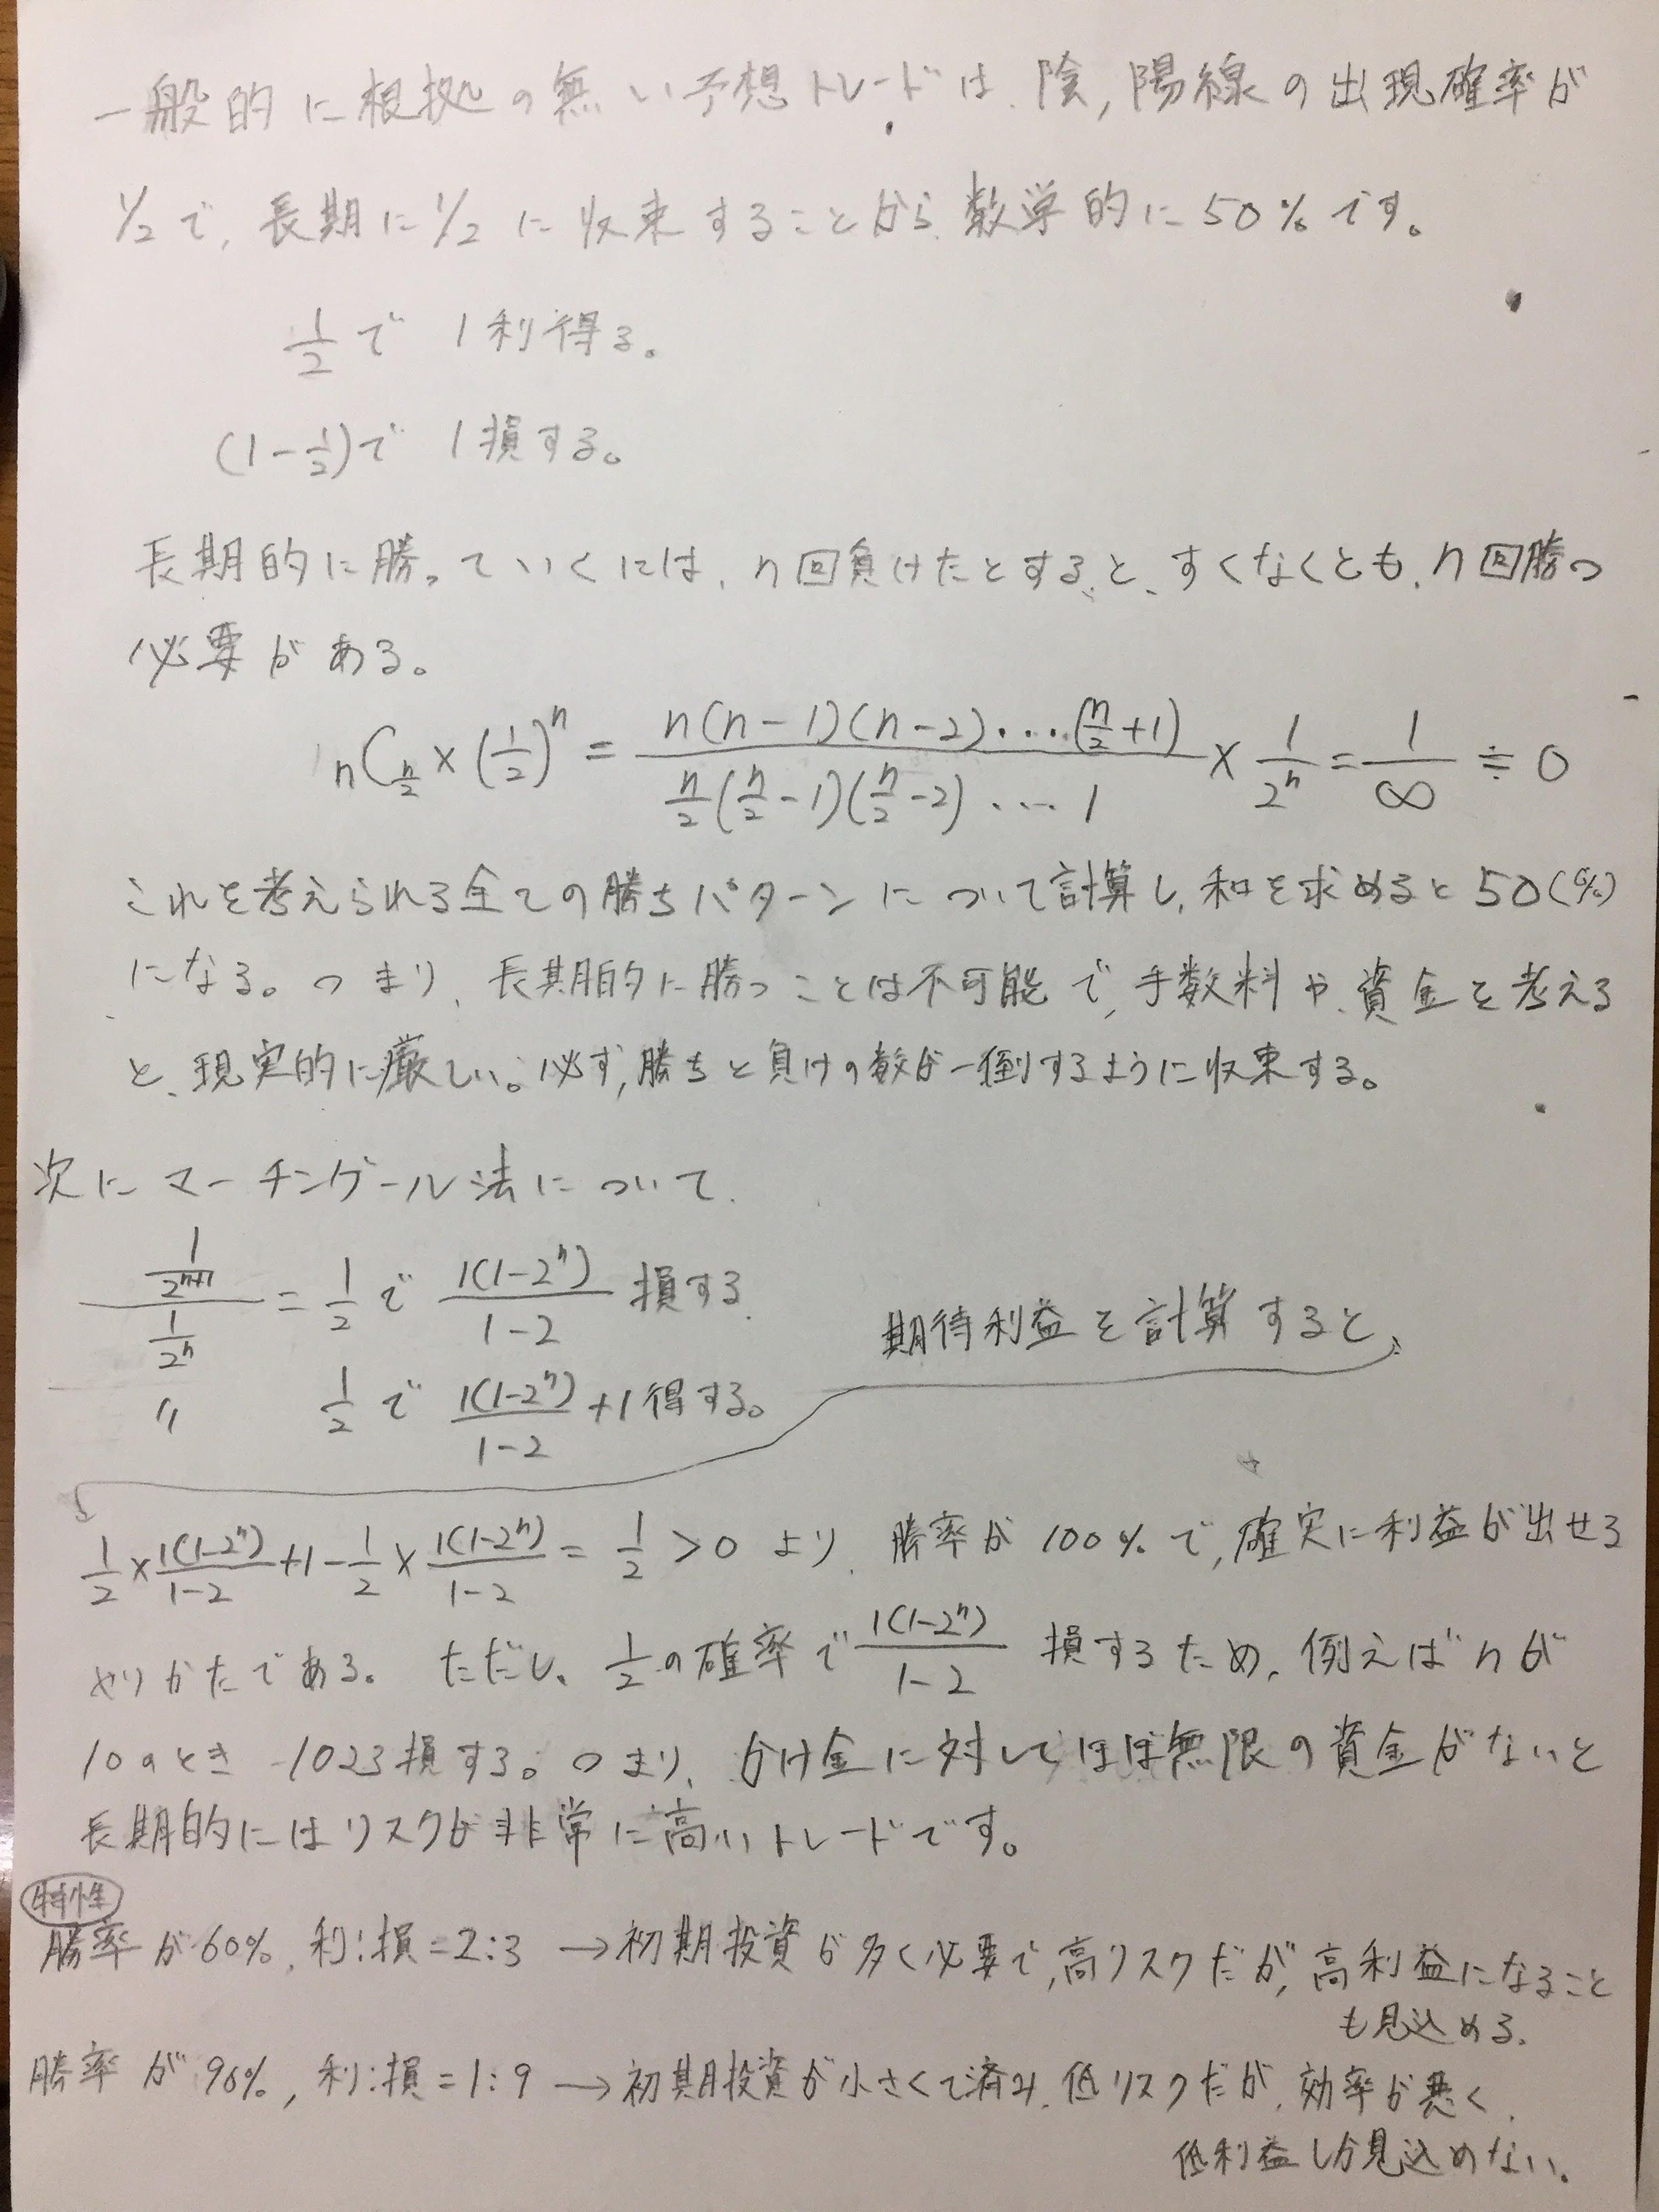 一般的に根拠の無い予想トレードは、陰,陽線の出現確率が
1/2で、長期に1/2に収束することから、数学的に50%です。
1/2で 1利得る。
(1-1/2)で 1損する。
長期的に勝っていくには、n回負けたとすると、すくなくとも、n回勝つ
必要がある。
nC(n/2)×(1/2)^n = n(n-1)(n-2)・・・・(n/2+1) / n/2(n/2-1)(n/2-2)・・・・1 × 1/2^n = 1/∞ ≒ 0
これを考えられる全ての勝ちパターンについて計算し、和を求めると50(%)
になる。つまり、長期的に勝つことは不可能で、手数料や、資金を考える
と、現実的に厳しい。必ず,勝ちと負けの数が一倒するように収束する。
次にマーチンゲール法について、
(1/2^(n+1))/(1/2^n) = 1/2で 1(1-2^n)/(1-2) 損する.
〃 1/2で 1(1-2^n)/(1-2) +1得する。
期待利益を計算すると、
1/2×1(1-2^n)/(1-2)+1-1/2×1(1-2^n)/(1-2) = 1/2 >0 より、勝率が100%で,確実に利益が出せる
やりかたである。ただし、1/2の確率で 1(1-2^n)/(1-2) 損するため、例えばnが
10のとき -1023損する。つまり、かけ金に対してほぼ無限の資金がないと
長期的にはリスクが非常に高いトレードです。
特性
勝率が60%、利:損=2:3 →初期投資が多く必要で,高リスクだが,高利益になること
も見込める。
勝率が90%, 利:損=1:9 →初期投資が小さくて済み、低リスクだが、効率が悪く、
低利益しか見込めない。